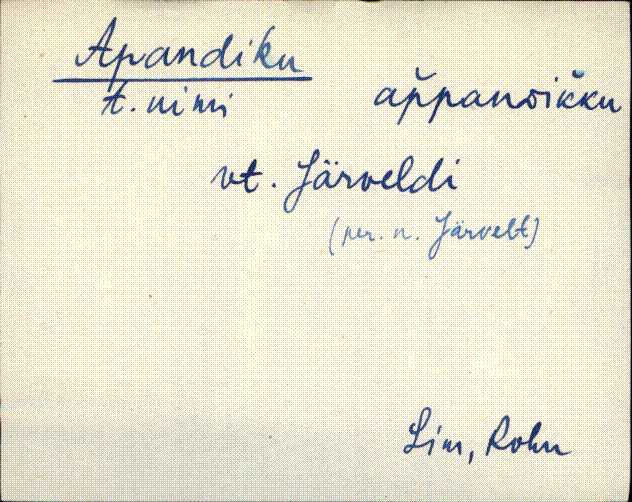 Apandiku
t. nimi appanDikku
vt. Järveldi
(per. n. Järvelt)
Sim, Rohu